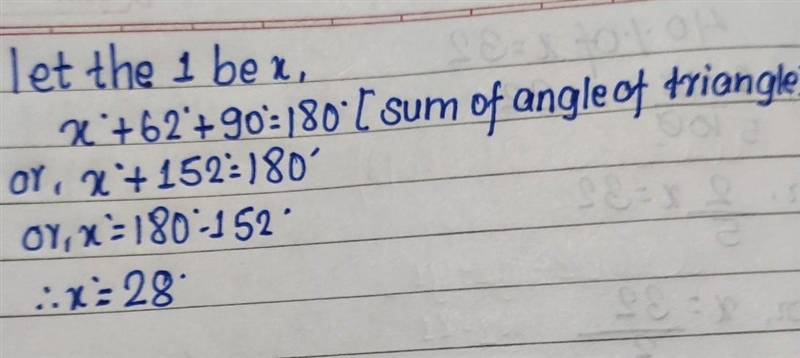 let the 1 be x,
x° + 62° + 90° = 180° [sum of angle of triangle]
or, x° + 152° = 180°
or, x° = 180° - 152°
∴ x° = 28°